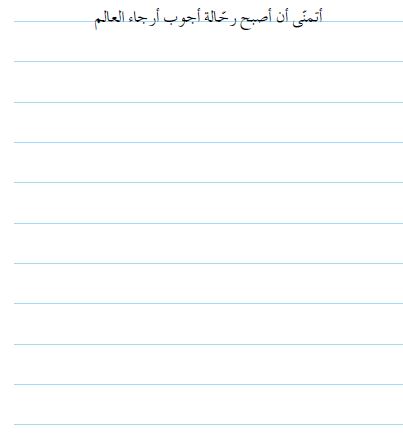 أتمنّى أن أصبح رحّالة أجوب أرجاء العالم